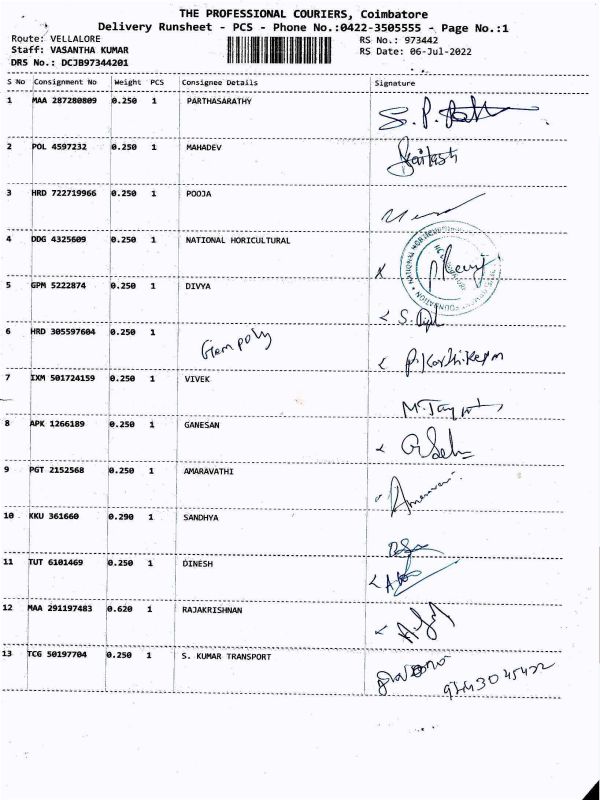 THE PROFESSIONAL COURIERS, Coimbatore
Delivery Runsheet - PCS - Phone No.:0422-3505555 - Page No.:1
Route: VELLALORE RS No.: 973442
Staff: VASANTHA KUMAR RS Date: 06-Jul-2022
DRS No.: DCJB97344201
S No Consignment No Weight PCS Consignee Details Signature
1 MAA 287280809 0.250 1 PARTHASARATHY
2 POL 4597232 0.250 1 MAHADEV
3 HRD 722719966 0.250 1 POOJA
4 DDG 4325609 0.250 1 NATIONAL HORICULTURAL
5 GPM 5222874 0.250 1 DIVYA
6 HRD 305597604 0.250 1 P. Karthikeyan
7 IXM 501724159 0.250 1 VIVEK
8 APK 1266189 0.250 1 GANESAN
9 PGT 2152568 0.250 1 AMARAVATHI
10 KKU 361660 0.290 1 SANDHYA
11 TUT 6101469 0.250 1 DINESH
12 MAA 291197483 0.620 1 RAJAKRISHNAN
13 TCG 50197704 0.250 1 S. KUMAR TRANSPORT